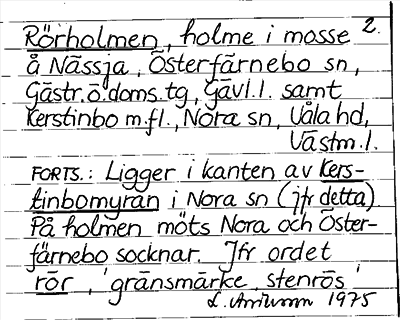 2.
Rörholmen, holme i mosse
å Nässja, Österfärnebo sn,
Gästr.ö.doms.tg, Gävl.l. samt
Kerstinbo m.fl., Nora sn, Våla hd,
Västm.l.
FORTS.: Ligger i kanten av Kers-
tinbomyran i Nora sn (jfr detta)
På holmen möts Nora och Öster-
färnebo socknar. Jfr ordet
rör, 'gränsmärke, stenrös'
1975